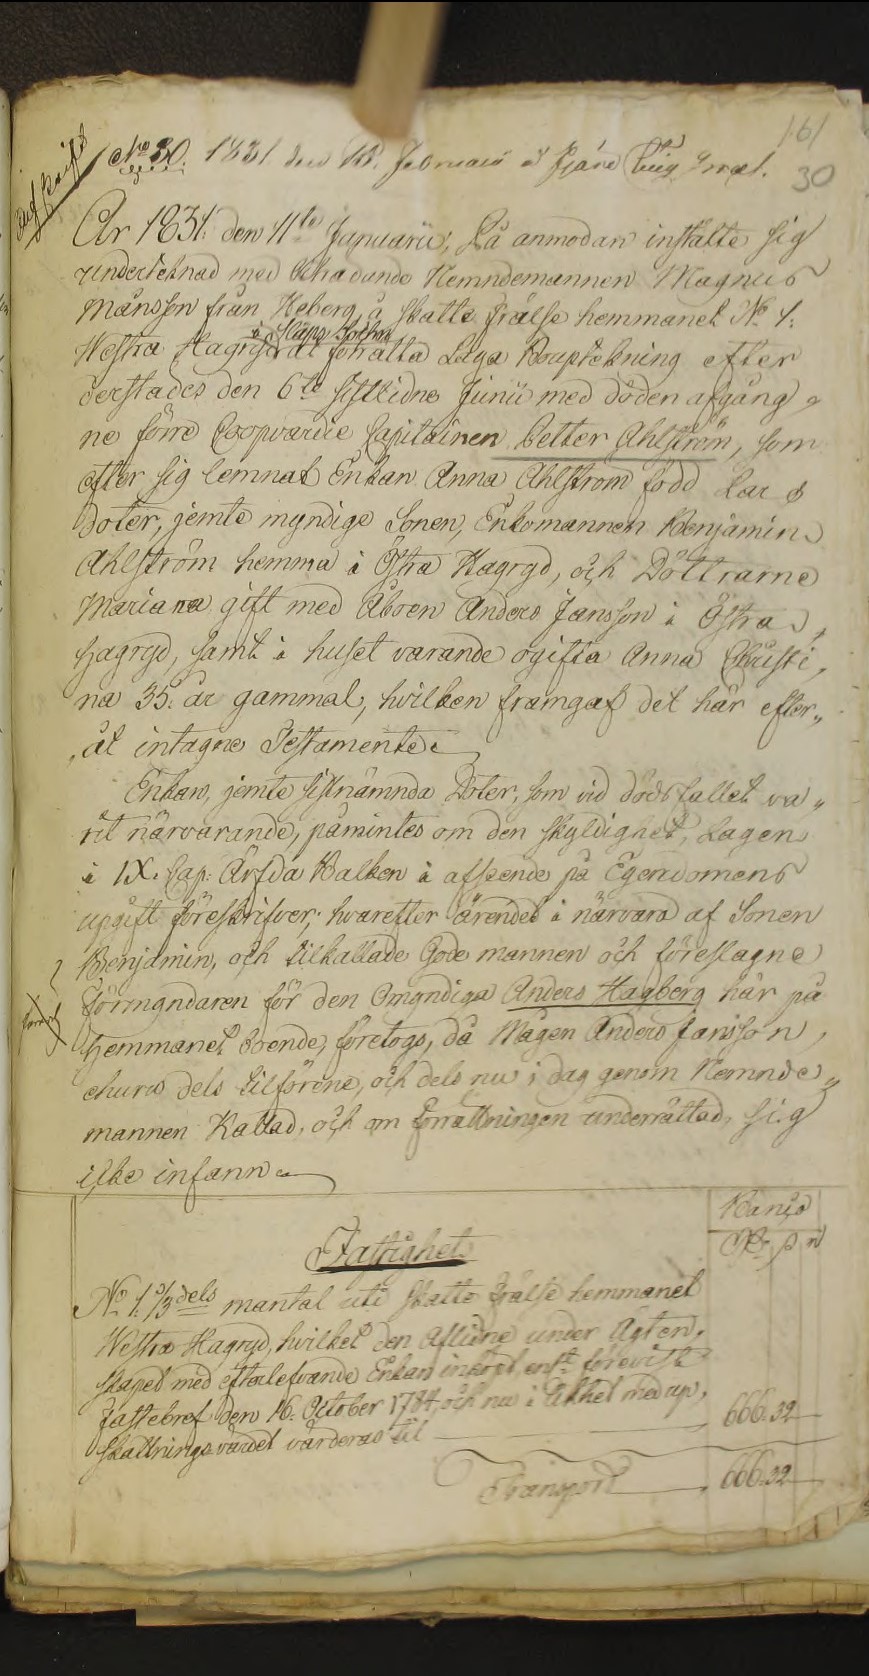 161
30
Afskrift
No 30. 1831 den 18. Februarii å Fjäre Ting
År 1831. den 11te Januarii; På anmodan instälte sig
underteknad med biträdande Nemndemannen Magnus
Månsson från Heberg, å skatte frälse hemmanet No 1.
i Släps Sokhen
Westra Hagryd, at förrätta Laga Bouptekning efter
derstädes den 6te sistledne Junii med döden afgång„
ne förre Coopvardie Capitainen Petter Ahlström, som
efter sig lemnat Enkan Anna Ahlström född Lars
doter, jemte myndige Sonen, Enkomannen Benjamin
Ahlström hemma i Östra Hagryd, och Döttrarne
Mariana gift med Åboen Anders Jansson i Östra
Hagryd, samt i huset varande ogifta Anna Christi„
na 35. år gammal, hvilken framgaf det här efter„
åt intagne Testamente.
Enkan, jemte sistnämnda Doter, som vid dödsfallet va„
rit närvarande, påmintes om den skyldighet, Lagen
i IX. Cap. Ärfda Balken i afseende på Egendomens
upgift föreskrifver; hvarefter ärendet i närvaro af Sonen
Benjamin, och tilkallade Gode mannen och föreslagne
Förmyndaren för den Omyndiga Anders Hagberg här på
Hemmanet boende, företogs, då Mågen Anders Jansson,
ehuru dels tilförene, och dels nu i dag genom Nemnde„
mannen Kallad, och om Förrättningen underrättad, sig
icke infann.
Banco
Rd s r
Fastighet
No 1. 1/3dels mantal uti Skatte Frälse hemmanet
Westra Hagryd, hvilket den Aflidne under Ägten„
skapet med efterlefvande Enkan inköpt, enl. förevist
Fastebref den 16. October 1784, och nu i likhet med up„
skattningsvärdet värderas til 666.32
Transport 666.32